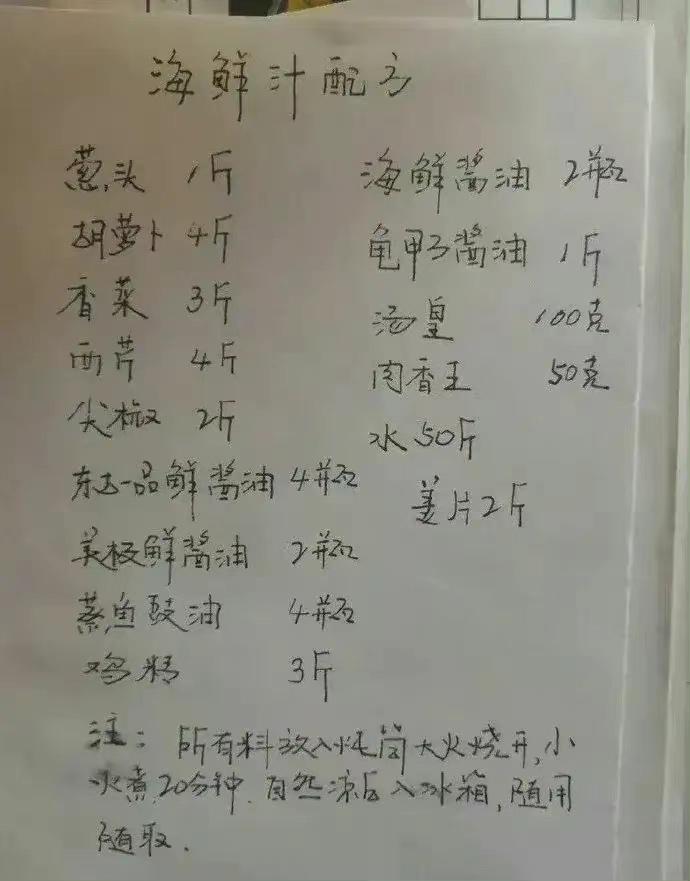 海鲜汁配方
葱头 1斤
胡萝卜 4斤
香菜 3斤
西芹 4斤
尖椒 2斤
东古一品鲜酱油 4瓶
美极鲜酱油 2瓶
蒸鱼豉油 4瓶
鸡精 3斤
海鲜酱油 2瓶
龟甲子酱油 1斤
汤皇 100克
肉香王 50克
水 50斤
姜片2斤
注：所有料放入炖筒大火烧开,小
火煮20分钟.自然凉后入冰箱,随用
随取.